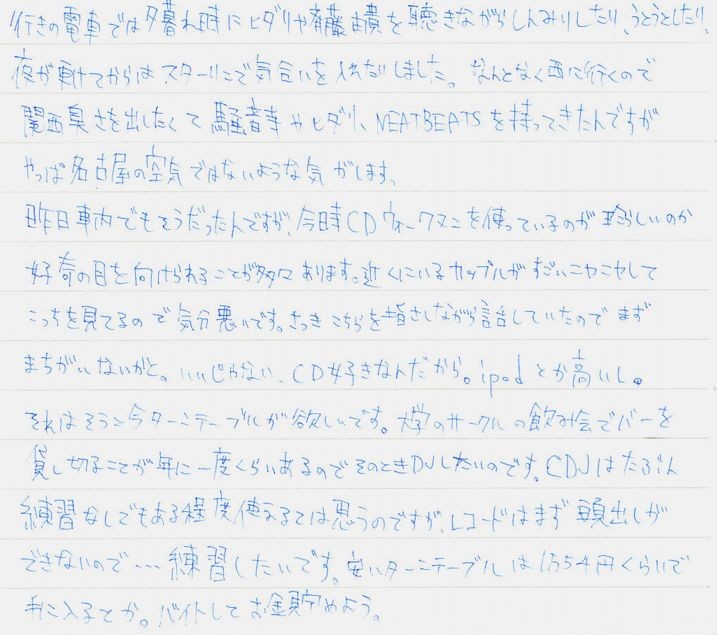 行きの電車では夕暮れ時にヒダリや斉藤由貴を聴きながらしんみりしたり、うとうとしたり、
夜が更けてからはスターリンで気合いを入れたりしました。なんとなく西に行くので
関西臭さを出したくて騒音寺やヒダリ、NEATBEATSを持ってきたんですが
やっぱ名古屋の空気ではないような気がします。
昨日車内でもそうだったんですが、今時CDウォークマンを使っているのが珍らしいのか
好奇の目を向けられることが多々あります。近くにいるカップルがすごいニヤニヤして
こっちを見てるので気分悪いです。さっきこちらを指さしながら話していたのでまず
まちがいないかと。いいじゃない、CD好きなんだから。ipodとか高いし。
それはそうと今ターンテーブルが欲しいです。大学のサークルの飲み会でバーを
貸し切ることが年に一度くらいあるのでそのときDJしたいのです。CDJはたぶん
練習なしでもある程度使えるとは思うのですが、レコードはまず頭出しが
できないので…練習したいです。安いターンテーブルは1万5千円くらいで
手に入るとか。バイトしてお金貯めよう。